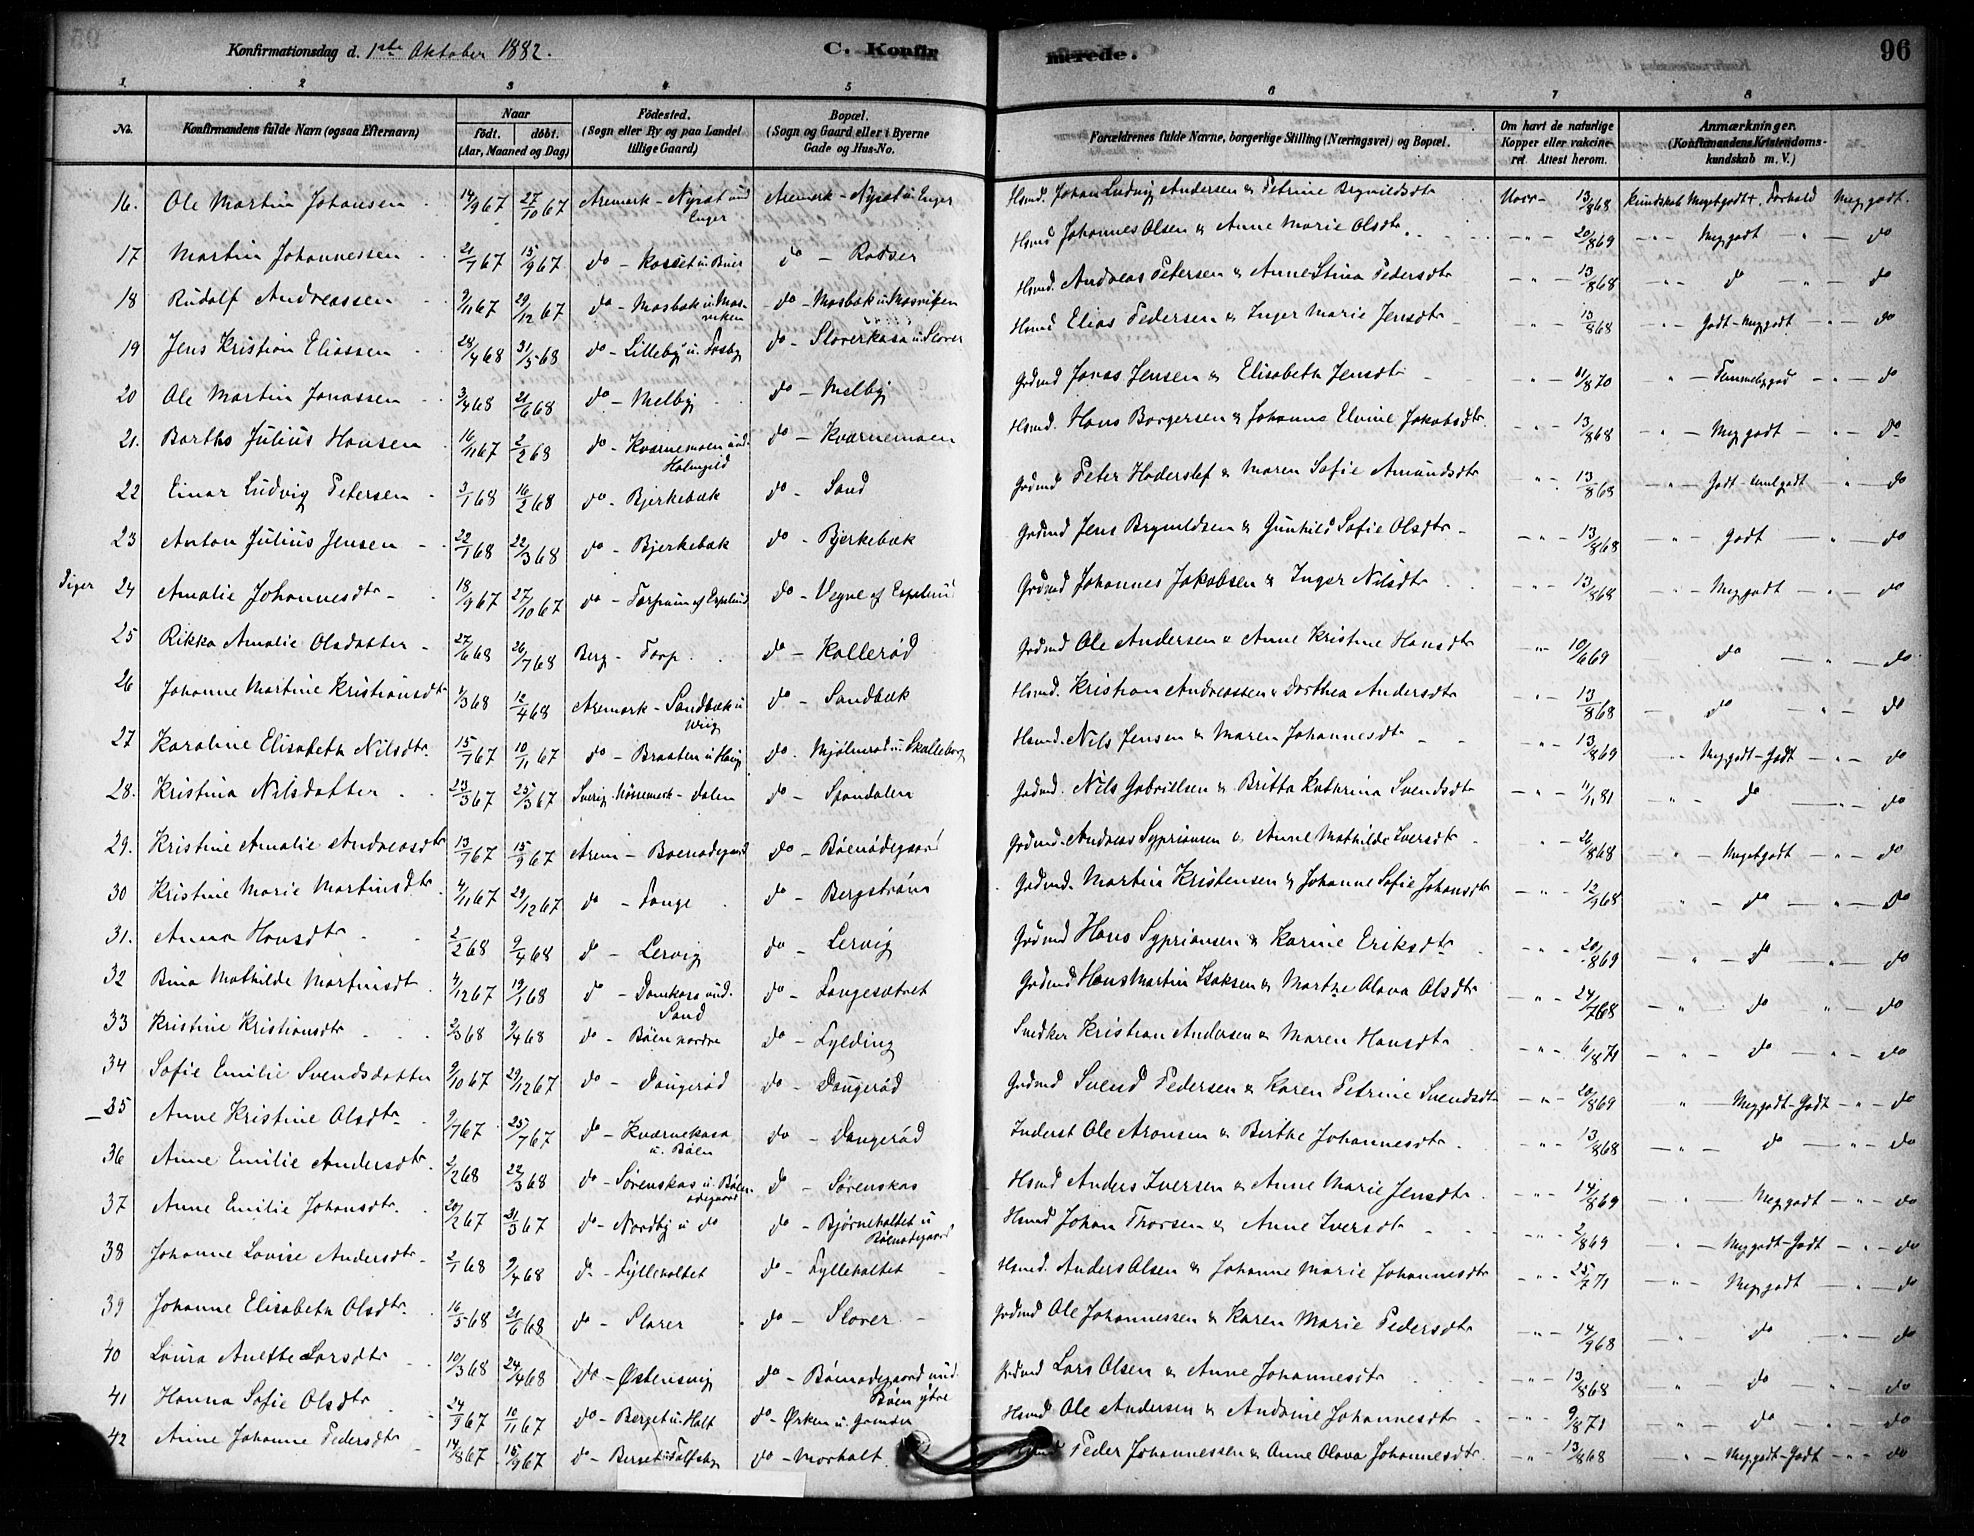 Konfirmationsdag d. 1ste Oktober 1882. C. Konfirmerede. 96
1 2 3 4 5 6 7 8
No. Konfirmandens fulde Navn (ogsaa Efternavn) Naar født. døbt. (Aar, Maaned og Dag) Fødested. (Sogn eller By og paa Landet tillige Gaard) Bopæl. (Sogn og Gaard eller i Byerne Gade og Hus-No. Forældrenes fulde Navne, borgerlige Stilling (Næringsvei) og Bopæl. Om havt de naturlige Kopper eller vaccineret. Attest herom. Anmærkninger. (Konfirmandens Kristendomskundskab m. V.)
16. Ole Martin Johansen 14/9 67 27/10 67 Aremark - Nysæt und Enger Aremark - Nysæt u. Enger Hsmd. Johan Ludvig Andersen & Petrine Brynildsdtr 13/8 68 Kundskab Megetgodt. Forhold Meggodt.
17 Martin Johannessen 21/7 67 15/9 67 do - Kasset u. Buer do - Rødser Hsmd Johannes Olsen & Anne Marie Olsdtr. 20/8 69 Meggodt do
18 Rudolf Andreassen 9/11 67 29/12 67 do - Mosbæk u. Mosviken do - Mosbæk u Mosviken Hsmd. Andreas Petersen & Anne Stina Pedersdtr 13/8 68 do do
19 Jens Kristian Eliassen 28/4 68 31/5 68 do - Lilleby u. Fosby do - Sloverkasa u. Slover Hsmd Elias Pedersen & Inger Marie Jensdtr 13/8 68 Godt-Meggodt do
20 Ole Martin Jonassen 3/4 68 21/6 68 do - Melby do - Melby Grdmd Jonas Jensen & Elisabeth Jensdtr 11/8 70 Temmeliggod do
21. Bartho Julius Hansen 16/11 67 2/2 68 do - Kvarnemoen und. Holmgild do - Kvarnemoen Hsmd. Hans Borgersen & Johanne Elvine Jakobsdtr. 13/8 68 Meggodt do
22 Einar Ludvig Petersen 3/1 68 16/2 68 do - Bjerkebæk do - Sand Grdmd Peter Haderslef & Maren Sofie Amundsdtr 13/8 68 Godt do
23 Anton Julius Jensen 22/1 68 22/3 68 do - Bjerkebæk do - Bjerkebæk Grdmd Jens Brynildsen & Gunhild Sofie Olsdtr 13/8 68 Godt do
Piger 24 Amalie Johannesdtr 18/9 67 27/10 67 do - do - Vegne af Espelund Grdmd Johannes Jakobsen & Inger Nilsdtr 13/8 68 Meggodt do
25 Rikka Amalie Olsdatter 27/6 68 26/7 68 Berg - Torp do - Kallerød Grdmd Ole Andersen & Anne Kristine Hansdtr 10/6 69 do do
26 Johanne Martine Kristiansdtr 1/3 68 12/4 68 Aremark - Sandbæk u. do - Sandbæk Hsmd. Kristian Andreassen & Dorthea Andersdtr 13/8 68 do do
27 Karoline Elisabeth Nilsdtr. 15/7 67 10/11 67 do - Braaten u. do - Mjølnerød u. Skalleborg Hsmd. Nils Jensen & Maren Johannesdtr 13/8 69 Meggodt-Godt do
28. Kristina Nilsdatter 23/3 67 25/3 67 Sverig Nössemark - Dalen do - Spondalen Grdmd. Nils Gabrielsen & Britta Kathrina Svendsdtr 11/1 81 do do
29. Kristine Amalie Andreasdtr 13/7 67 15/9 67 Arem - Boenødegaard do - Bøenødegaard Grdmd. Andreas Syprionsen & Anne Mathilde Iversdtr 26/8 68 Megetgodt do
30 Kristine Marie Martinsdtr 4/11 67 29/12 67 do - Tange do - Bergstrøm Grdmd. Martin Kristensen & Johanne Sofie Johansdtr 12/9 68 do do
31. Anna Hansdtr 2/2 68 9/4 68 do - Lervig do - Lervig Grdmd Hans Syprionsen & Karine Eriksdtr 20/8 69 do do
32 Bina Mathilde Martinsdtr 4/12 67 19/1 68 do - Damkasa und. Sand do - Langesætret Grdmd Hans Martin Isaksen & Marthe Olava Olsdtr 24/7 68 do do
33 Kristine Kristiansdtr 2/3 68 9/4 68 do - Bøen nordre do - Fylding Snedker Kristian Andersen & Maren Hansdtr 6/8 71 do do
34 Sofie Emilie Svendsdatter 9/10 67 29/12 67 do - Daugerød do - Daugerød Grdmd Svend Pedersen & Karen Petrine Svendsdtr 20/8 69 Meggodt-Godt do
35 Anne Kristine Olsdtr 9/7 67 25/7 67 do - Kvarnekasa u. Bøen do - Daugerød Inderst Ole Aronsen & Birthe Johannesdtr 13/8 68 do do
36 Anne Emilie Andersdtr. 2/2 68 22/3 68 do - Sørenskas u. Bøenødegaard do - Sørenskas Hsmd Anders Iversen & Anne Marie Jensdtr 14/8 69 Meggodt do
37 Anne Emilie Johansdtr. 20/2 67 31/3 67 do - Nordby u do do - Bjørneholtet u Bøenødegaard Hsmd Johan Thorsen & Anne Iversdtr 2/8 69 Meggodt-Godt do
38 Johanne Lovise Andersdtr 2/1 68 9/4 68 do - Fylleholtet do - Fylleholtet Hsmd. Anders Olsen & Johanne Marie Johannesdtr 25/7 71 Meggodt do
39 Johanne Elisabeth Olsdtr. 16/5 68 21/6 68 do - Slorer do - Slover Grdmd Ole Johannessen & Karen Marie Pedersdtr 14/9 68 do do
40 Laura Anette Larsdtr 10/3 68 24/4 68 do - Østensvig do - Bøenødegaard und. Bøen ytre Grdmd Lars Olsen & Anne Johannesdtr 13/8 68 do do
41 Hanna Sofie Olsdtr 24/9 67 10/11 67 do - Berget u. Holt do - Ørken u. Hsmd. Ole Andersen & Andrine Johannesdtr 9/8 71 do do
42 Anne Johanne Pedersdtr 14/8 67 15/9 67 do - do - Morholt Hsmd Peder Johannessen & Anne Olava Johannesdtr. 13/8 68 Meggodt-Godt do